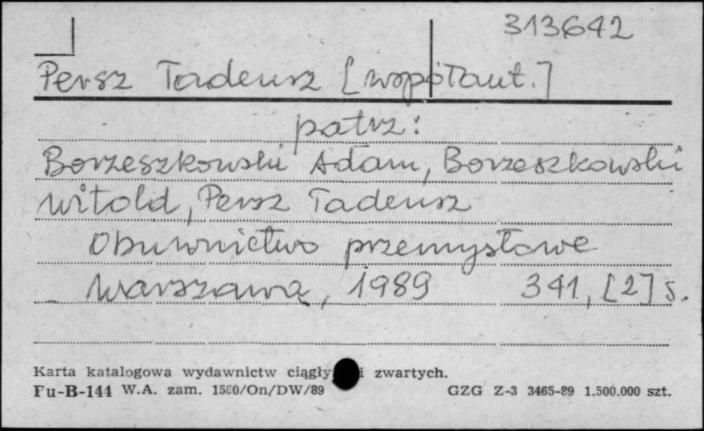 313642
Persz Tadeusz [współaut.]
patrz:
Borzeszkowski Adam, Borzeszkowski
Witold, Persz Tadeusz
Obuwnictwo przemysłowe
Warszawa, 1989 341, [2] s.
Karta katalogowa wydawnictw ciągły i zwartych.
Fu-B-144 W.A. zam. 1580/On/DW/89 GZG Z-3 3465-89 1.500.000 szt.